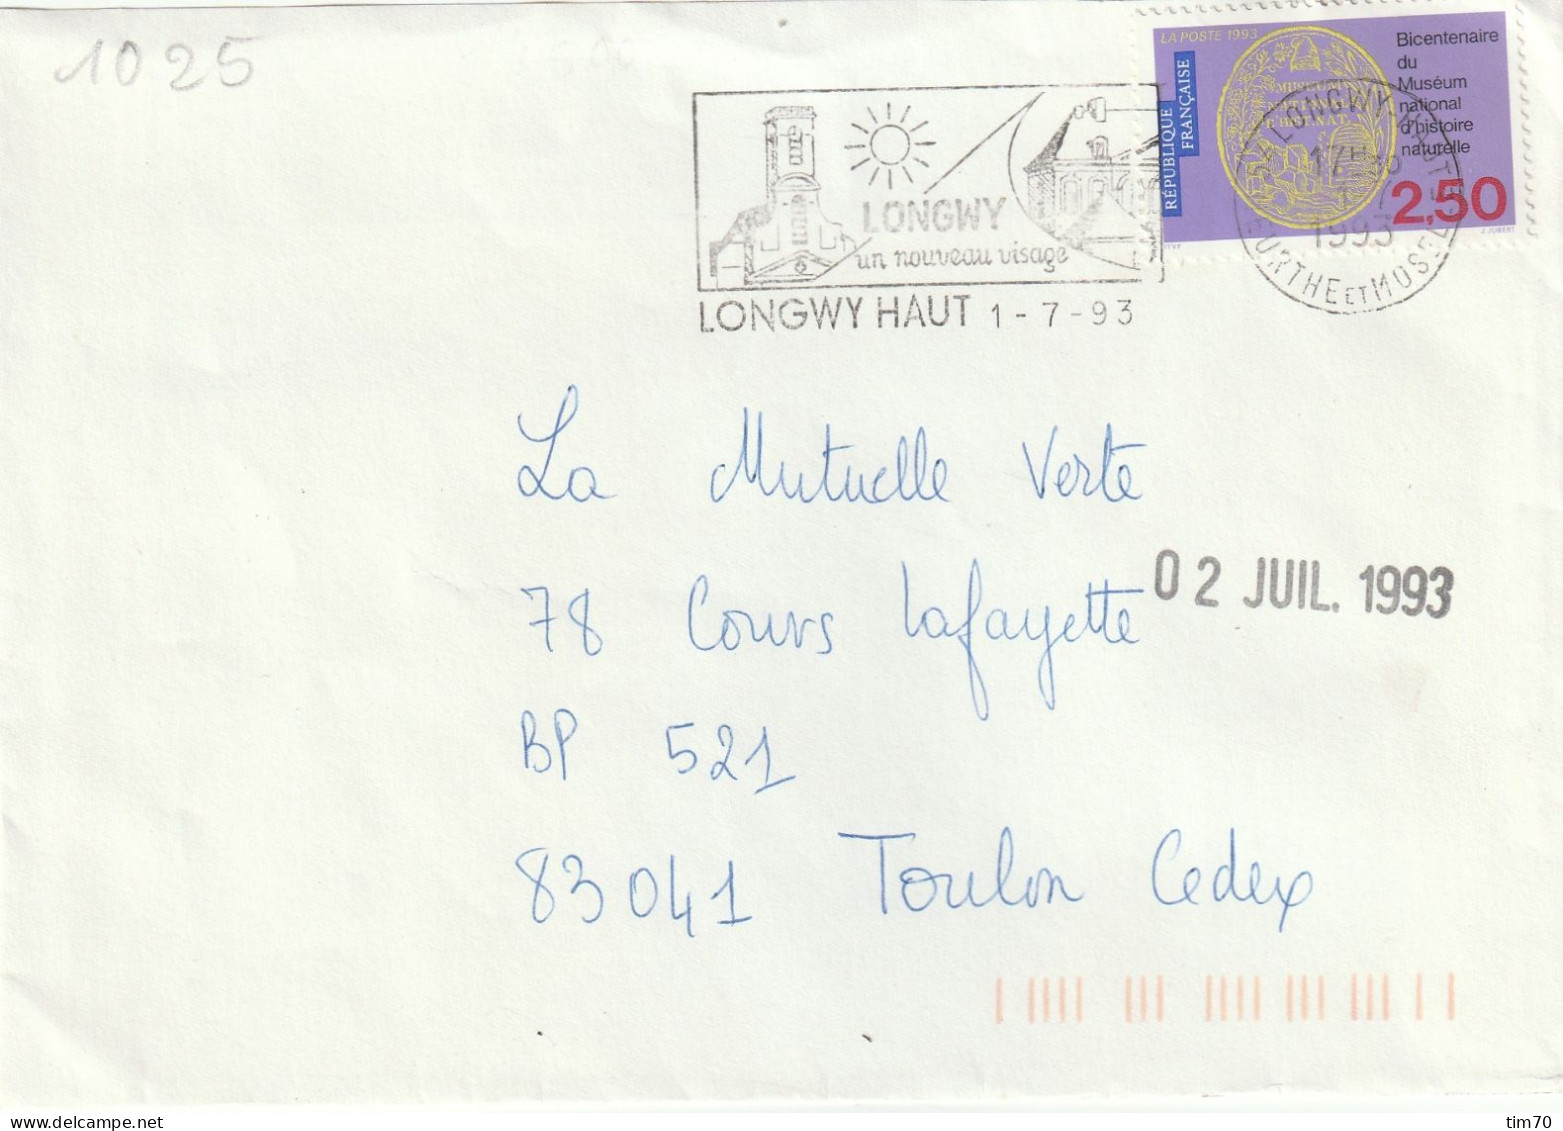 1025
LA POSTE 1993
RÉPUBLIQUE
FRANÇAISE
Bicentenaire
du
Muséum
national
d'histoire
naturelle
2,50
LONGWY
un nouveau visage
LONGWY HAUT 1-7-93
54 LONGWY-HAUT
17H30
1993
MEURTHE ET MOSELLE
La Mutuelle Verte
02 JUIL. 1993
78 Cours Lafayette
BP 521
83041 Toulon Cedex
tim70
delcampe.net